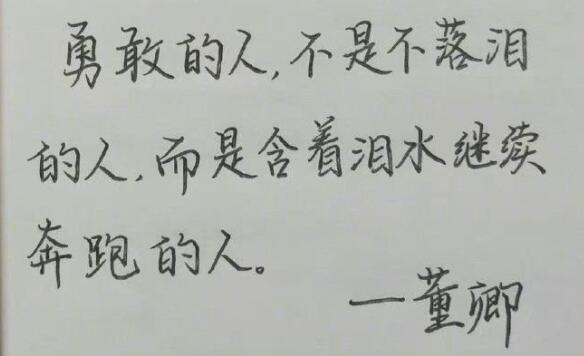 勇敢的人,不是不落泪
的人,而是含着泪水继续
奔跑的人。
—董卿